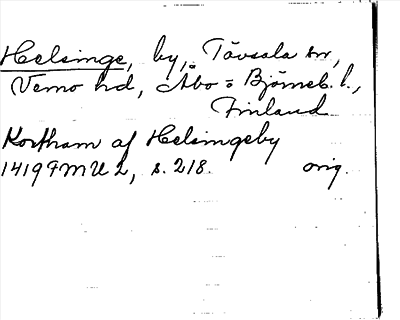 Helsinge, by, Tövsala sn,
Vemo hd, Åbo = Björneb. l.,
Finland
Kortham af Helsingeby
1419 FMU 2, s. 218. orig.